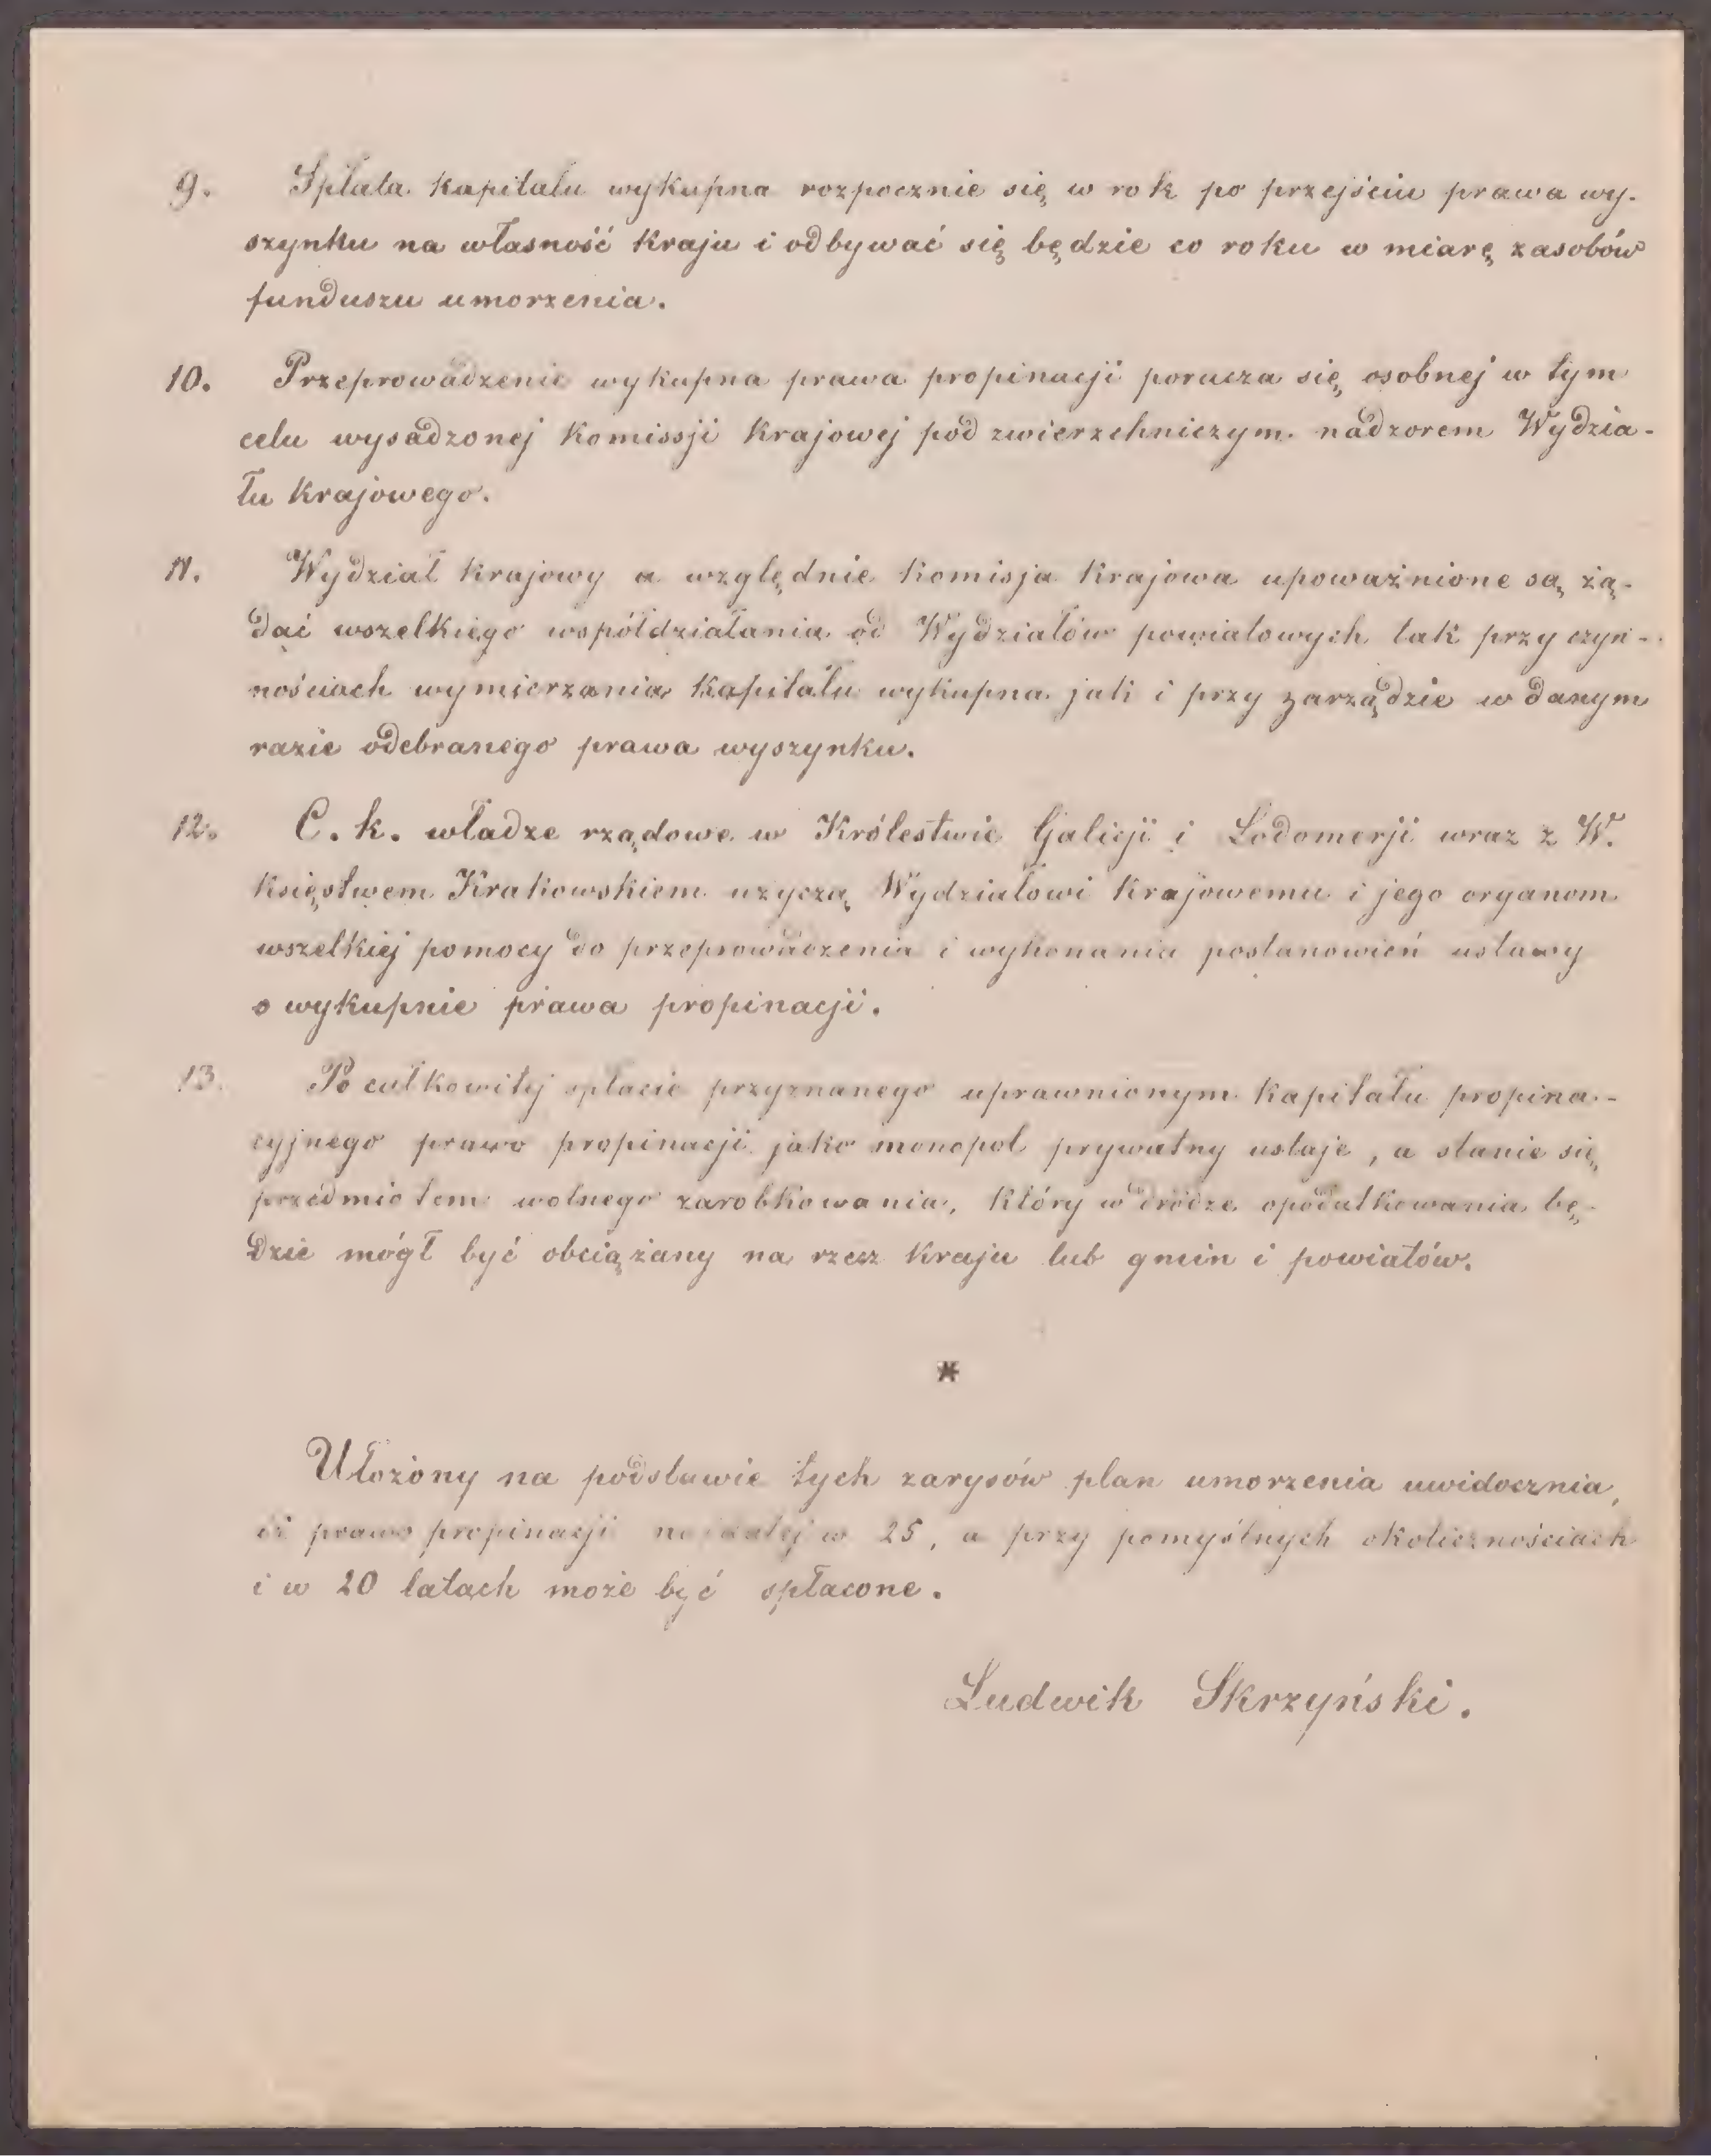 9. Spłata kapitału wykupna rozpocznie się w rok po przejściu prawa wy-
szynku na własność kraju i odbywać się będzie co roku w miarę zasobów
funduszu umorzenia.
10. Przeprowadzenie wykupna prawa propinacji porucza się osobnej w tym
celu wysadzonej Komissji Krajowej pod zwierzchniczym nadzorem Wydzia-
łu Krajowego.
11. Wydział Krajowy a względnie Komisja Krajowa upoważnione są żą-
dać wszelkiego współdziałania od Wydziałów powiatowych tak przy czyn-
nościach wymierzania Kapitału wykupna jak i przy zarządzie w danym
razie odebranego prawa wyszynku.
12. C. k. władze rządowe w Królestwie Galicji i Lodomerji wraz z W.
Księstwem Krakowskiem użyczą Wydziałowi Krajowemu i jego organom
wszelkiej pomocy do przeprowadzenia i wykonania postanowień ustawy
o wykupnie prawa propinacji.
13. Po całkowitej spłacie przyznanego uprawnionym Kapitału propina-
cyjnego prawo propinacji jako monopol prywatny ustaje, a stanie się
przedmiotem wolnego zarobkowania, który w drodze opodatkowania bę-
dzie mógł być obciążany na rzecz Kraju lub gmin i powiatów.
*
Ułożony na podstawie tych zarysów plan umorzenia uwidocznia,
iż prawo propinacji najdalej w 25, a przy pomyślnych okolicznościach
i w 20 latach może być spłacone.
Ludwik Skrzyński.